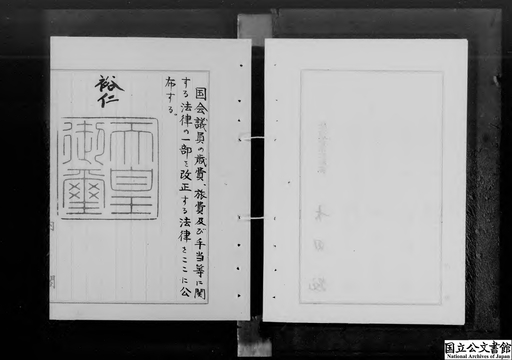 国会議員の歳費、旅費及び手当等に関
する法律の一部を改正する法律をここに公
布する。
裕仁
天皇
御璽
国立公文書館
National Archives of Japan